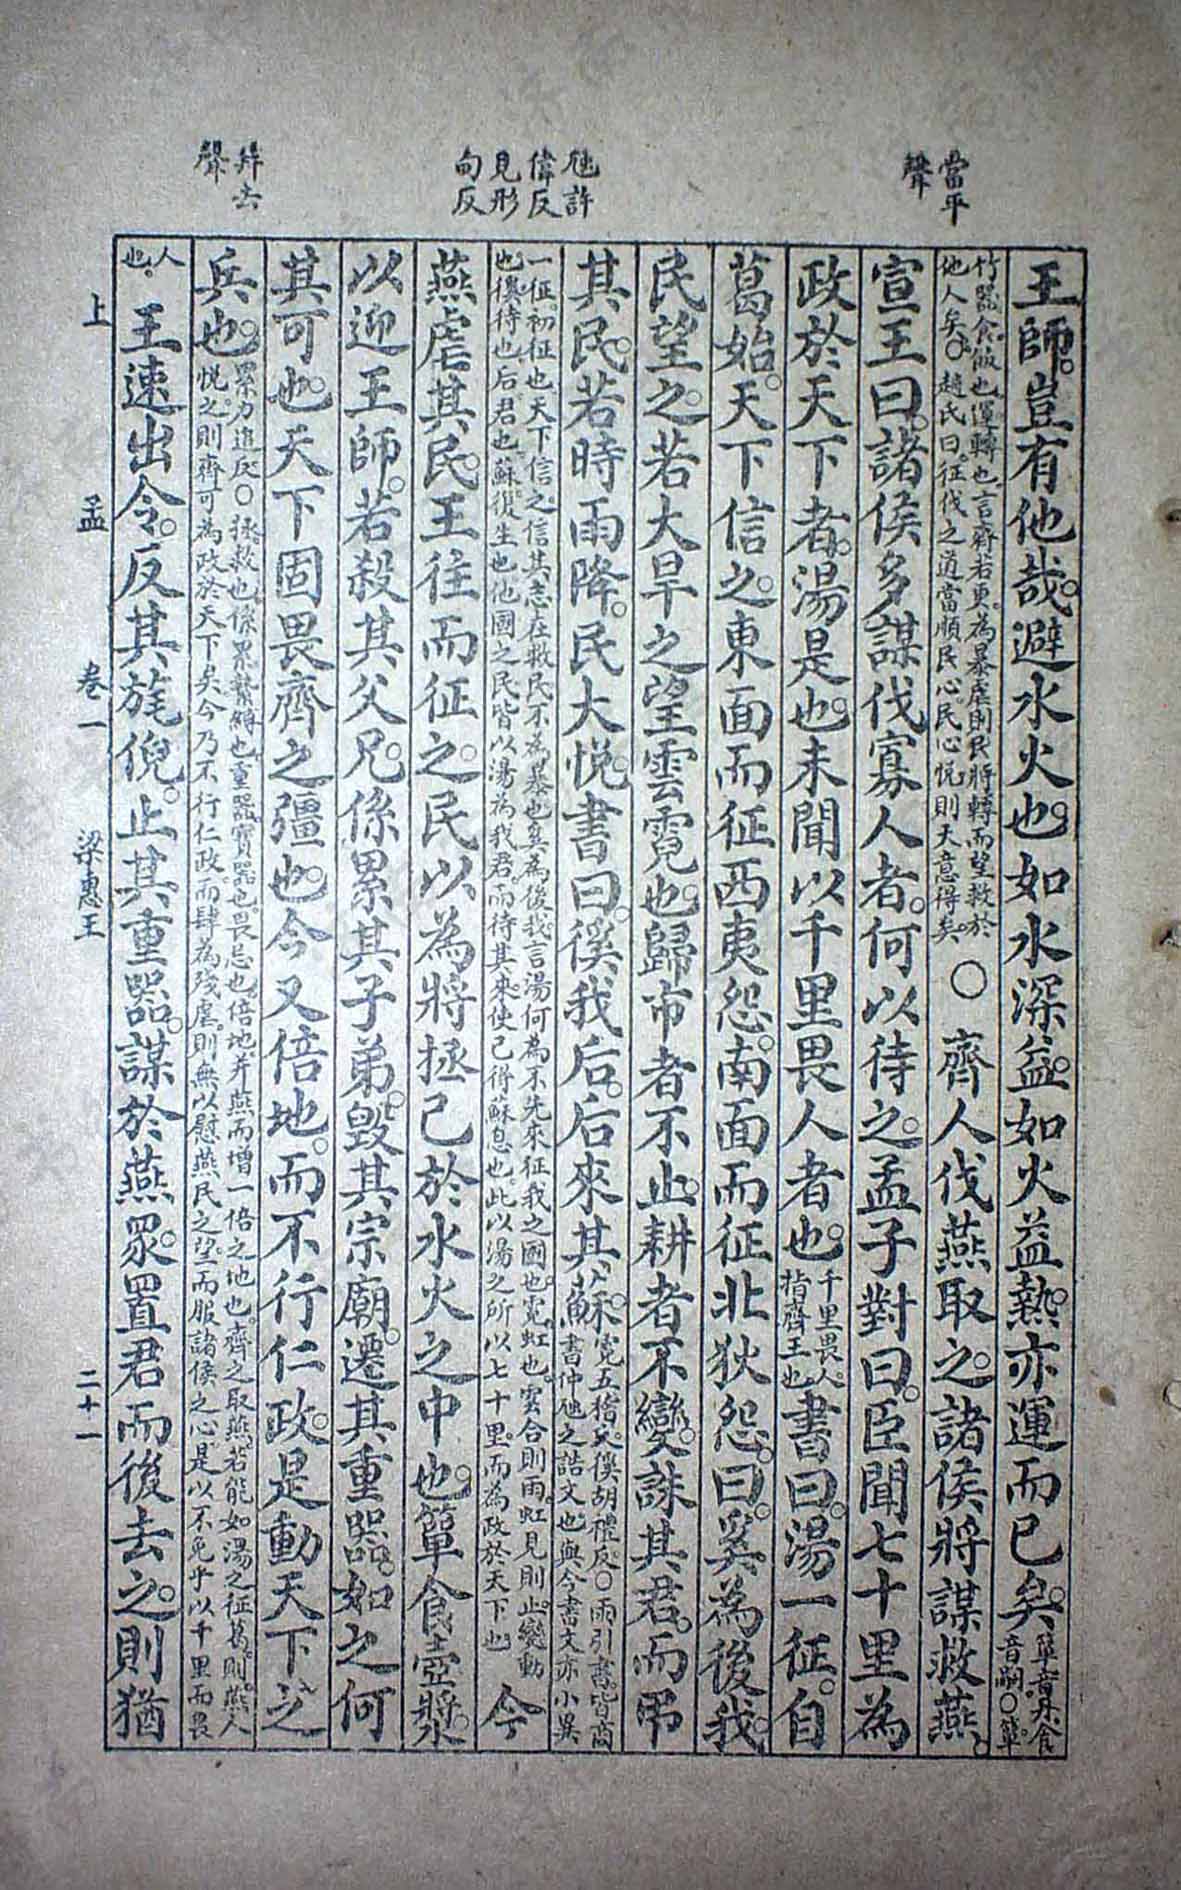 當平
聲
虺許
偉反
見形
甸反
并去
聲
王師。豈有他哉。避水火也。如水深益。如火益熱。亦運而已矣。簞音丹食音嗣○簞
竹器。食。飯也。運轉也。言齊若更為暴虐。則民將轉而望救於他人矣。○趙氏曰。征伐之道。當順民心。民心悅。則天意得矣。○齊人伐燕取之。諸侯將謀救燕。
宣王曰。諸侯多謀伐寡人者。何以待之。孟子對曰。臣聞七十里為
政於天下者。湯是也。未聞以千里畏人者也。千里畏人。指齊王也。書曰。湯一征。自
葛始。天下信之。東面而征西夷怨。南面而征北狄怨。曰。奚為後我。
民望之。若大旱之望雲霓也。歸市者不止。耕者不變。誅其君。而弔
其民。若時雨降。民大悅。書曰。徯我后。后來其蘇。霓五稽反。徯胡禮反。○兩引書。皆商書仲虺之誥文也。與今書文亦小異
一征。初征也。天下信之。信其志在救民。不為暴也。奚為後我。言湯何為不先來征我之國也。霓。虹也。雲合則雨。虹見則止。變動也。徯。待也。后。君也。蘇。復生也。他國之民。皆以湯為我君。而待其來。使己得蘇息也。此以湯之所以七十里。而為政於天下也。今
燕虐其民。王往而征之。民以為將拯己於水火之中也。簞食壺漿。
以迎王師。若殺其父兄。係累其子弟。毀其宗廟。遷其重器。如之何
其可也。天下固畏齊之彊也。今又倍地。而不行仁政。是動天下之
兵也。累力追反。○拯。救也。係累。縶縛也。重器。寶器也。畏。忌也。倍地。并燕而增一倍之地也。齊之取燕。若能如湯之征葛。則燕人悅之。則齊可為政於天下矣。今乃不行仁政。而肆為殘虐。則無以慰燕民之望。而服諸侯之心。是以不免乎以千里而畏
人也。王速出令。反其旄倪。止其重器。謀於燕眾。置君而後去之。則猶
上 孟 卷一 梁惠王 二十一